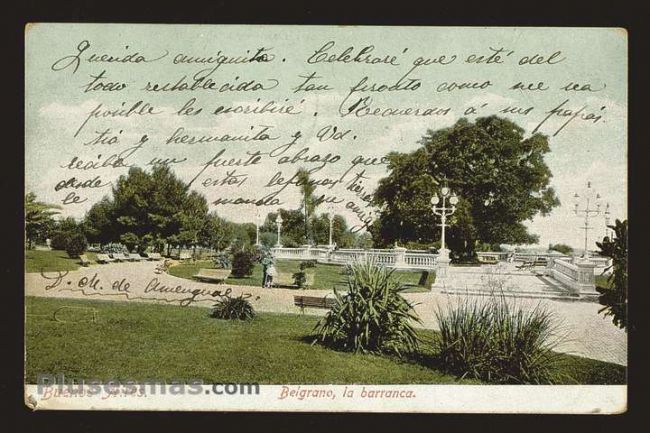 Querida amiguita. Celebraré que esté del
todo restablecida tan pronto como me sea
posible les escribiré. Recuerdos á sus papás,
tia y hermanita y Vd.
reciba un fuerte abrazo que
desde estas lejanas tierras
le manda su amiga
D. M. de Amenguel
Buenos Aires.
Belgrano, la barranca.
Plusesmas.com